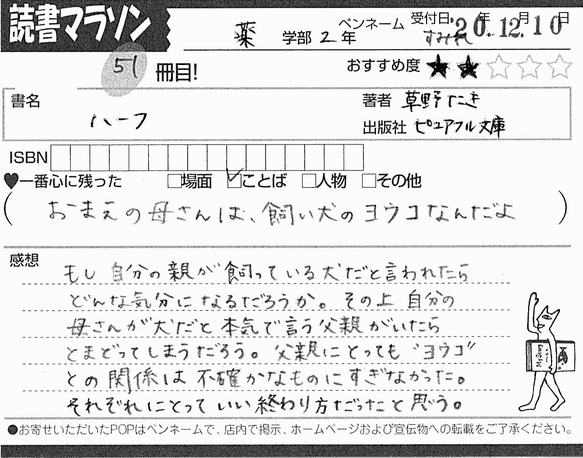 読書マラソン
薬 学部 2 年 ペンネーム すみれ 受付日 '20年12月10日
51 冊目! おすすめ度 ★★☆☆☆
書名 ハーフ
著者 草野たき
出版社 ピュアフル文庫
ISBN
♥一番心に残った □場面 ☑ことば □人物 □その他
(おまえの母さんは、飼い犬のヨウコなんだよ)
感想
もし自分の親が飼っている犬だと言われたら
どんな気分になるだろうか。その上自分の
母さんが犬だと本気で言う父親がいたら
とまどってしまうだろう。父親にとっても"ヨウコ"
との関係は不確かなものにすぎなかった。
それぞれにとっていい終わり方だったと思う。
●お寄せいただいたPOPはペンネームで、店内で掲示、ホームページおよび宣伝物への転載をご了承ください。